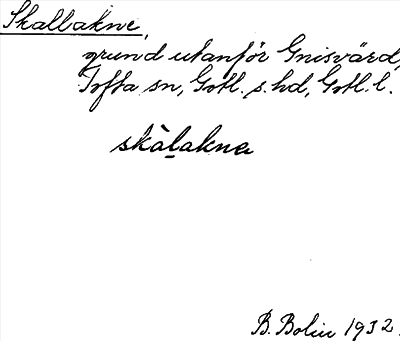 Skallakne,
grund utanför Gnisvärd,
Tofta sn, Gotl. s. hd, Gotl. l.
skàlakne
B. Bolin 1932.